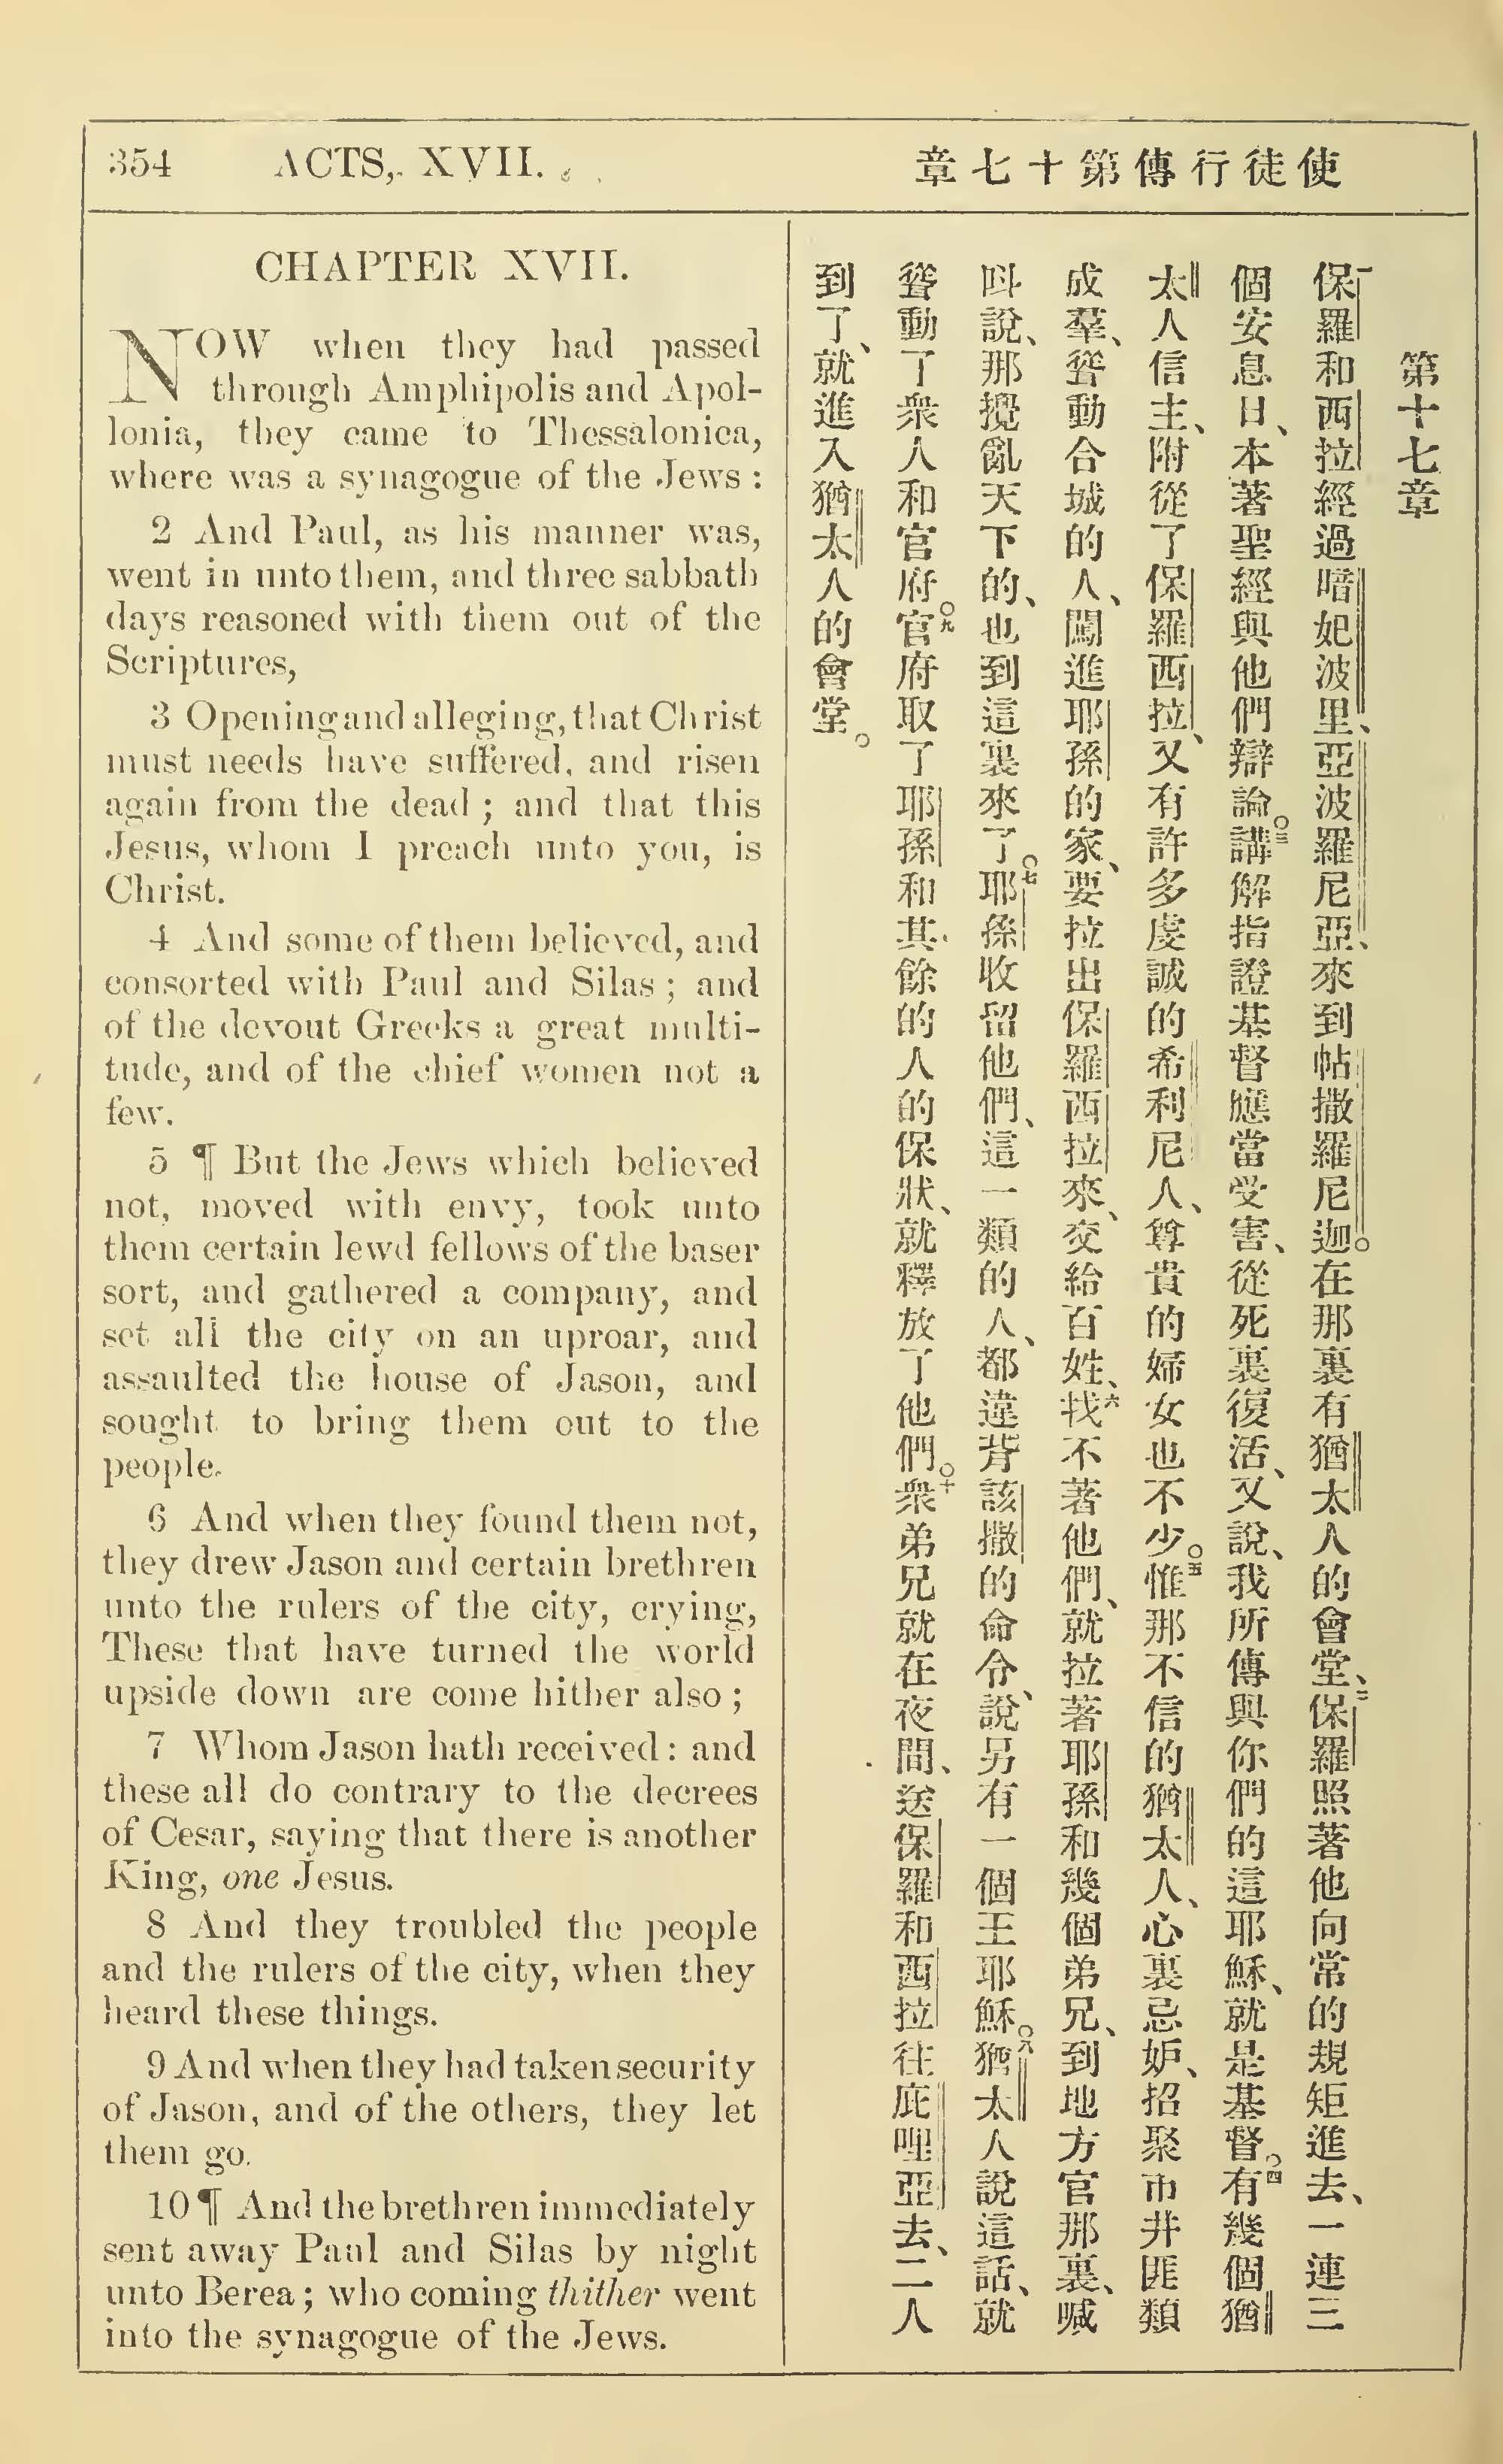 354 ACTS, XVII.
使徒行傳第十七章
CHAPTER XVII.
NOW when they had passed
through Amphipolis and Apol-
lonia, they came to Thessalonica,
where was a synagogue of the Jews :
2 And Paul, as his manner was,
went in unto them, and three sabbath
days reasoned with them out of the
Scriptures,
3 Opening and alleging, that Christ
must needs have suffered, and risen
again from the dead ; and that this
Jesus, whom I preach unto you, is
Christ.
4 And some of them believed, and
consorted with Paul and Silas ; and
of the devout Greeks a great multi-
tude, and of the chief women not a
few.
5 ¶ But the Jews which believed
not, moved with envy, took unto
them certain lewd fellows of the baser
sort, and gathered a company, and
set all the city on an uproar, and
assaulted the house of Jason, and
sought to bring them out to the
people.
6 And when they found them not,
they drew Jason and certain brethren
unto the rulers of the city, crying,
These that have turned the world
upside down are come hither also ;
7 Whom Jason hath received : and
these all do contrary to the decrees
of Cesar, saying that there is another
King, one Jesus.
8 And they troubled the people
and the rulers of the city, when they
heard these things.
9 And when they had taken security
of Jason, and of the others, they let
them go.
10 ¶ And the brethren immediately
sent away Paul and Silas by night
unto Berea ; who coming thither went
into the synagogue of the Jews.
第十七章
一保羅和西拉經過暗妃波里、亞波羅尼亞、來到帖撒羅尼迦。在那裏有猶太人的會堂、二保羅照著他向常的規矩進去、一連三
個安息日、本著聖經與他們辯論。三講解指證基督應當受害、從死裏復活、又說、我所傳與你們的這耶穌、就是基督。四有幾個猶
太人信主、附從了保羅西拉、又有許多虔誠的希利尼人、尊貴的婦女也不少。五惟那不信的猶太人、心裏忌妒、招聚市井匪類
成羣、聳動合城的人、闖進耶孫的家、要拉出保羅西拉來、交給百姓、六找不著他們、就拉著耶孫和幾個弟兄、到地方官那裏、喊
呌說、那攪亂天下的、也到這裏來了。七耶孫收留他們、這一類的人、都違背該撒的命令、說另有一個王耶穌。八猶太人說這話、就
聳動了衆人和官府。九官府取了耶孫和其餘的人的保狀、就釋放了他們。十衆弟兄就在夜間、送保羅和西拉往庇哩亞去、二人
到了、就進入猶太人的會堂。